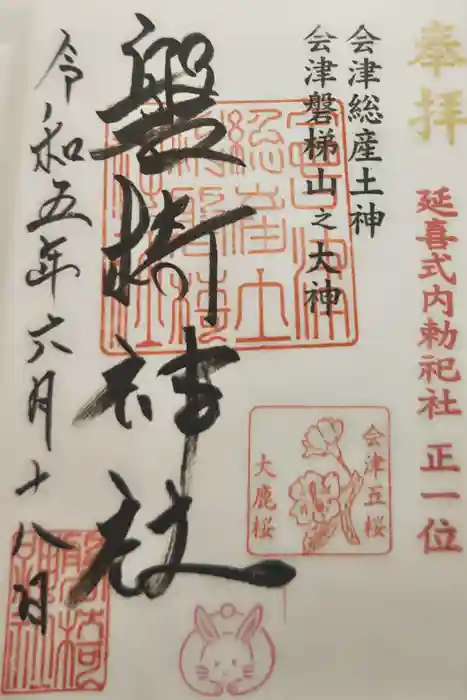 奉拝
延喜式内勅祀社 正一位
会津総産土神
会津磐梯山之大神
磐椅神社
会津五桜
大鹿桜
令和五年六月十八日